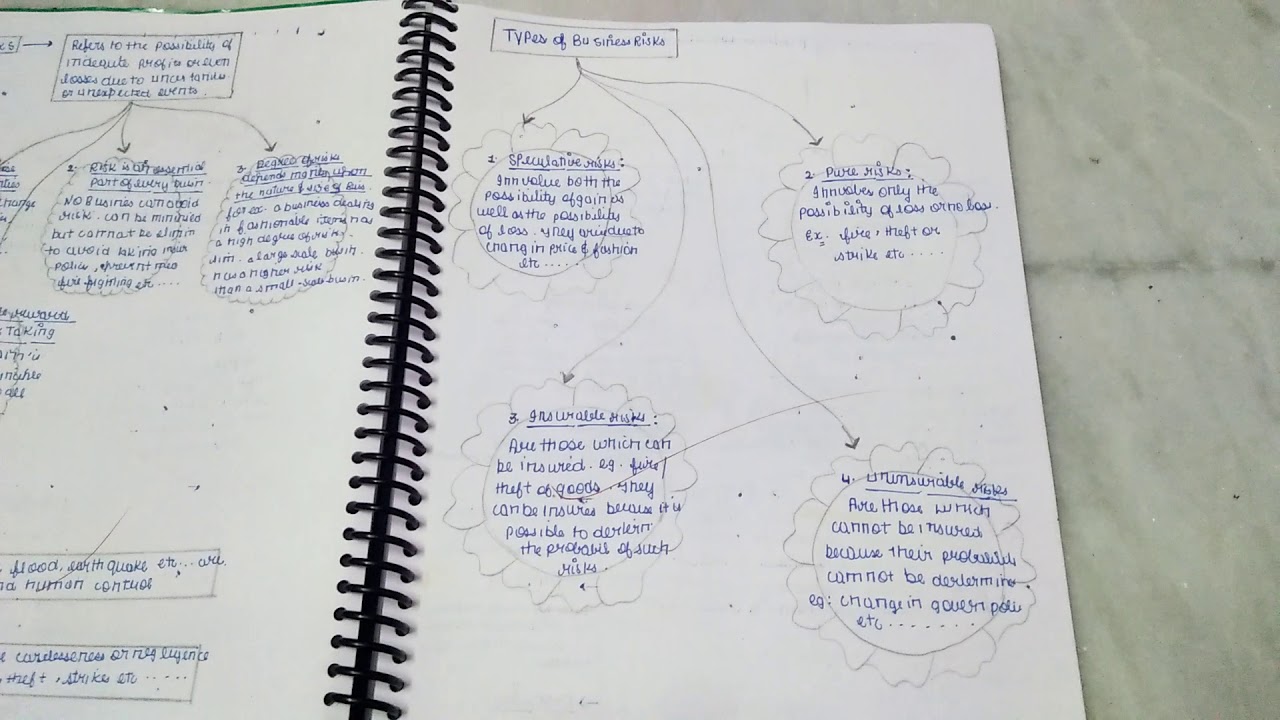 Refers to the possibility of
inadequte profits or even
losses due to uncertainties
or unexpected events.
2. Risk is an essential
part of every busin
No Business can avoid
risk. can be minimied
but cannot be elimin
to avoid taking insur
polics, prevent meo
fire fighting etc ....
3. Degree of risks
depends mainly upon
the nature & size of Bus.
for ex. a business dealing
in fashionable items has
a high degree of risk.
sim. a large scale busin.
has a higher risk
than a small-scale busin.
reward
Taking
flood, earthquake etc... are
human control
carelessness or negligence
theft, strikes etc .....
Types of Business Risks
1. Speculative risks:
Innvolve both the
possibility of gain as
well as the possibility
of loss. They arise due to
change in price & fashion
etc .....
2. Pure risks:
Innvolves only the
possibility of loss or no loss.
Ex. fire, theft or
strike etc .....
3. Insurable risks:
Are those which can
be insured. eg. fire
theft of goods. They
can be insures because it is
possible to derterm
the probabil of such
risks.
4. Uninsurable risks
Are those which
cannot be insured
because their probabiliti
cannot be derlermine
eg: change in govern polic
etc ........